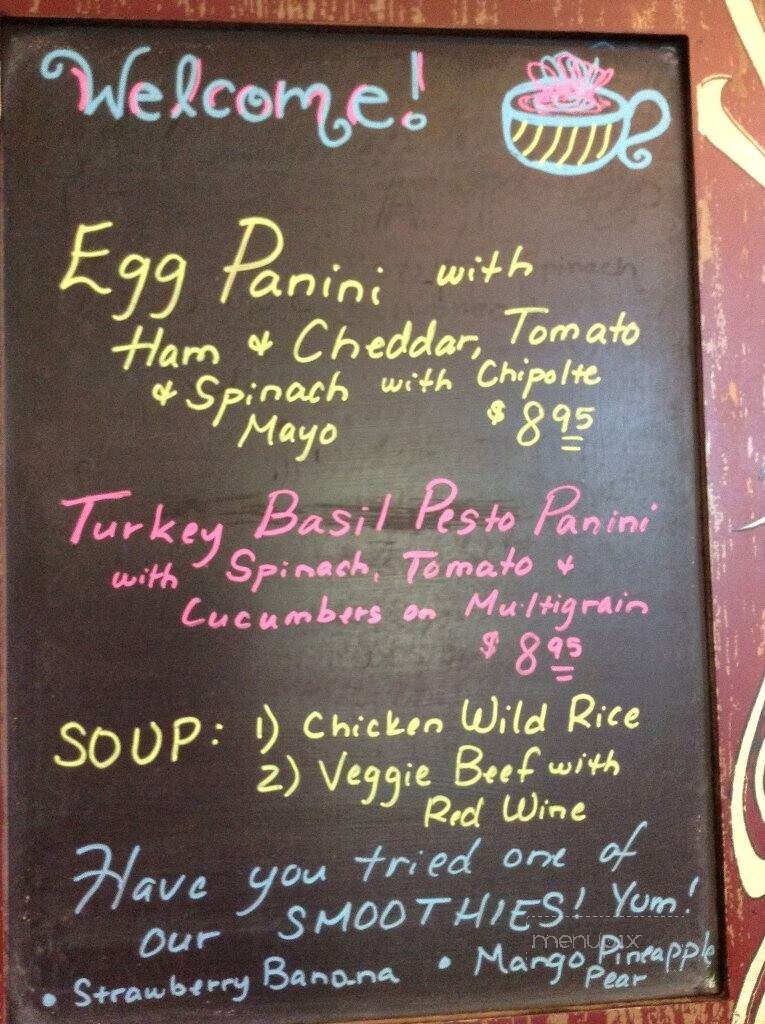 Welcome!
Egg Panini with
Ham & Cheddar, Tomato
& Spinach with Chipolte
Mayo $8.95
Turkey Basil Pesto Panini
with Spinach, Tomato &
Cucumbers on Multigrain
$8.95
SOUP: 1) Chicken Wild Rice
2) Veggie Beef with
Red Wine
Have you tried one of
our SMOOTHIES! Yum!
• Strawberry Banana • Mango Pineapple
Pear
menupix